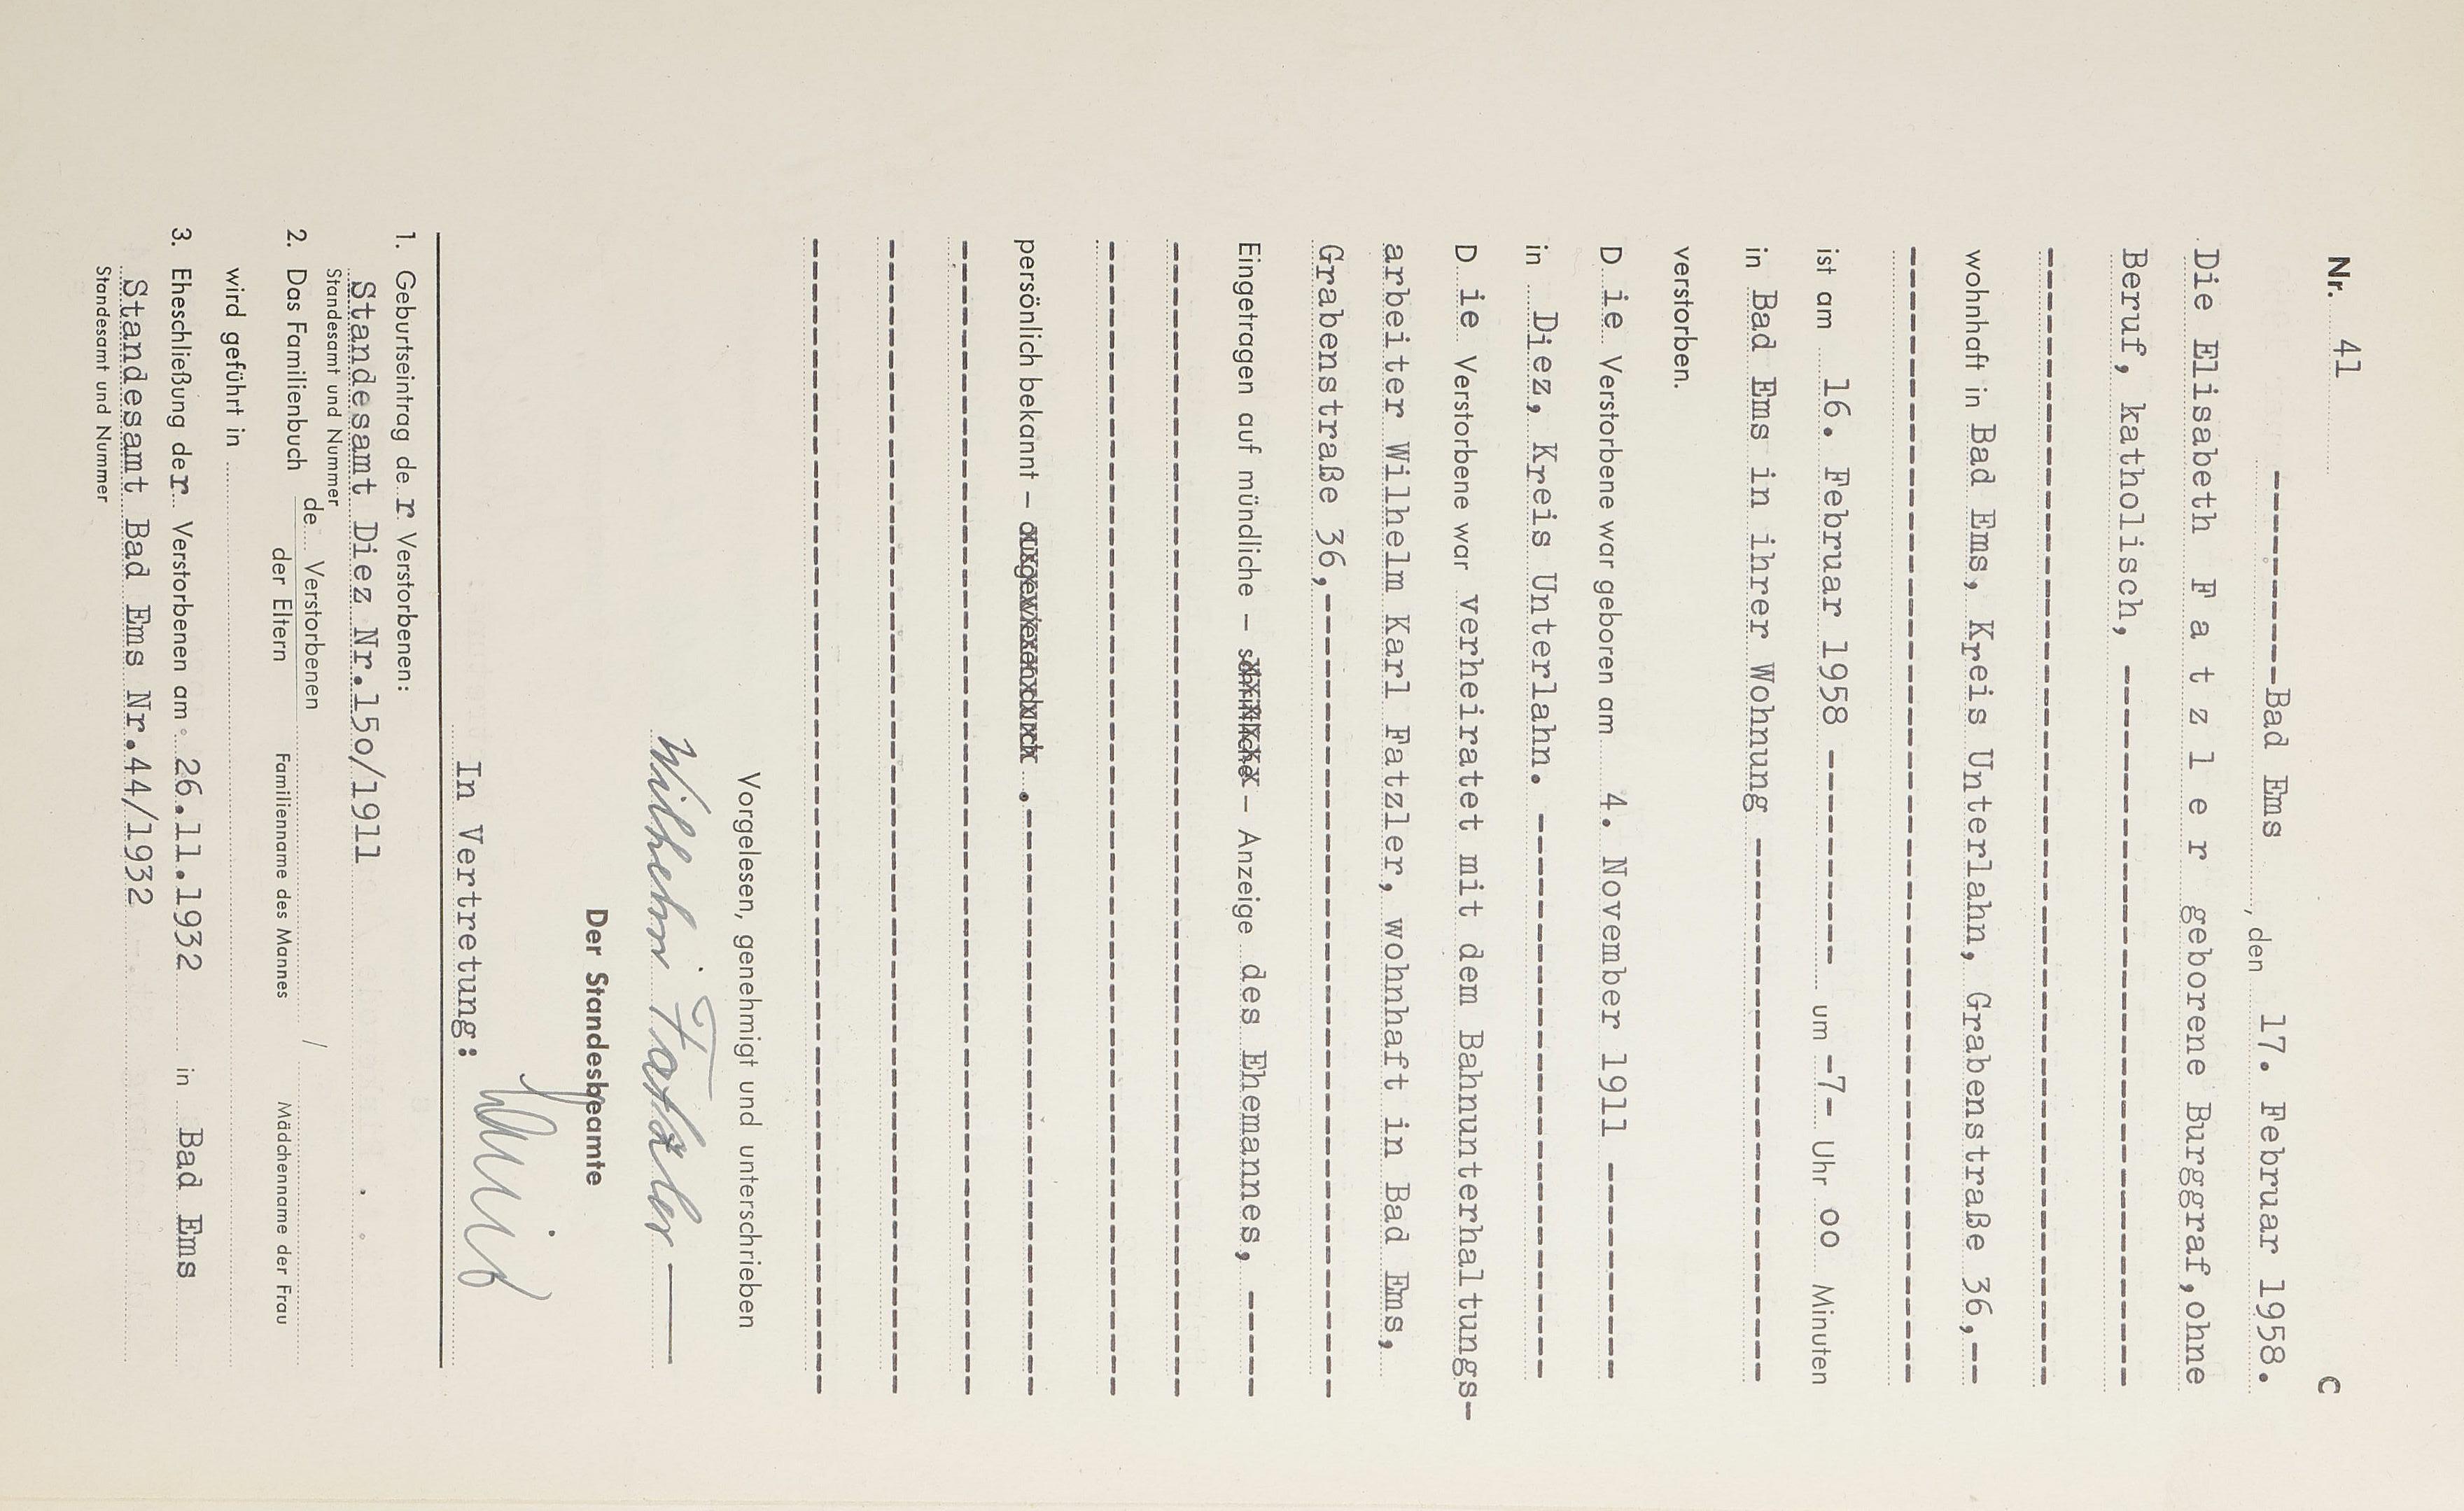 Nr. 41
C
-----------Bad Ems , den 17. Februar 1958.
Die Elisabeth F a t z l e r geborene Burggraf,ohne
Beruf, katholisch, ------------------------------
wohnhaft in Bad Ems, Kreis Unterlahn, Grabenstraße 36,--
ist am 16. Februar 1958 ---------- um -7- Uhr oo Minuten
in Bad Ems in ihrer Wohnung ------------------------
verstorben.
D ie Verstorbene war geboren am 4. November 1911 ----------
in Diez, Kreis Unterlahn. --------------------------
D ie Verstorbene war verheiratet mit dem Bahnunterhaltungs-
arbeiter Wilhelm Karl Fatzler, wohnhaft in Bad Ems,
Grabenstraße 36,------------------------------------
Eingetragen auf mündliche – schriftliche – Anzeige des Ehemannes, -----
persönlich bekannt – ausgewiesen durch .---------------------------
Vorgelesen, genehmigt und unterschrieben
Wilhelm Fatzler
Der Standesbeamte
In Vertretung:
1. Geburtseintrag de r Verstorbenen:
Standesamt Diez Nr.15o/1911
Standesamt und Nummer
2. Das Familienbuch de Verstorbenen /
der Eltern Familienname des Mannes Mädchenname der Frau
wird geführt in
3. Eheschließung der Verstorbenen am 26.11.1932 in Bad Ems
Standesamt Bad Ems Nr.44/1932
Standesamt und Nummer